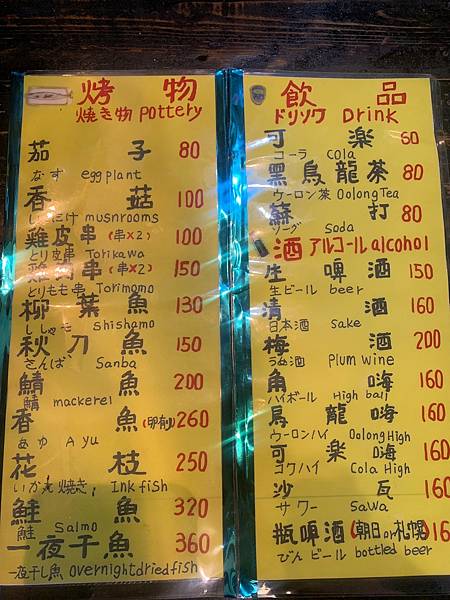 烤物
焼き物 pottery
茄子 80
なす eggplant
香菇 100
しいたけ musnrooms
雞皮串(串x2) 100
とり皮串 Torikawa
(串x2) 150
とりもも串 Torimomo
柳葉魚 130
ししゃも Shishamo
秋刀魚 150
さんば Sanba
鯖魚 200
鯖 mackerel
香魚(甲劑)260
あゆ Ayu
花枝 250
いか丸焼き, Inkfish
鮭魚 320
鮭 Salmo
一夜干魚 360
一夜干し魚 overnightdriedfish
飲品
ドリンク Drink
可楽 60
コーラ Cola
黑烏龍茶 80
ウーロン茶 Oolong Tea
蘇打 80
ソーダ Soda
酒 アルコール alcohol
生啤酒 150
生ビール beer
清酒 160
日本酒 Sake
梅酒 200
うめ酒 Plum wine
角嗨 160
ハイボール High ball
烏龍嗨 160
ウーロンハイ Oolong High
可楽嗨 160
コクハイ Cola High
沙瓦 160
サワー Sawa
瓶啤酒(朝日or札幌)16
びんビール bottled beer